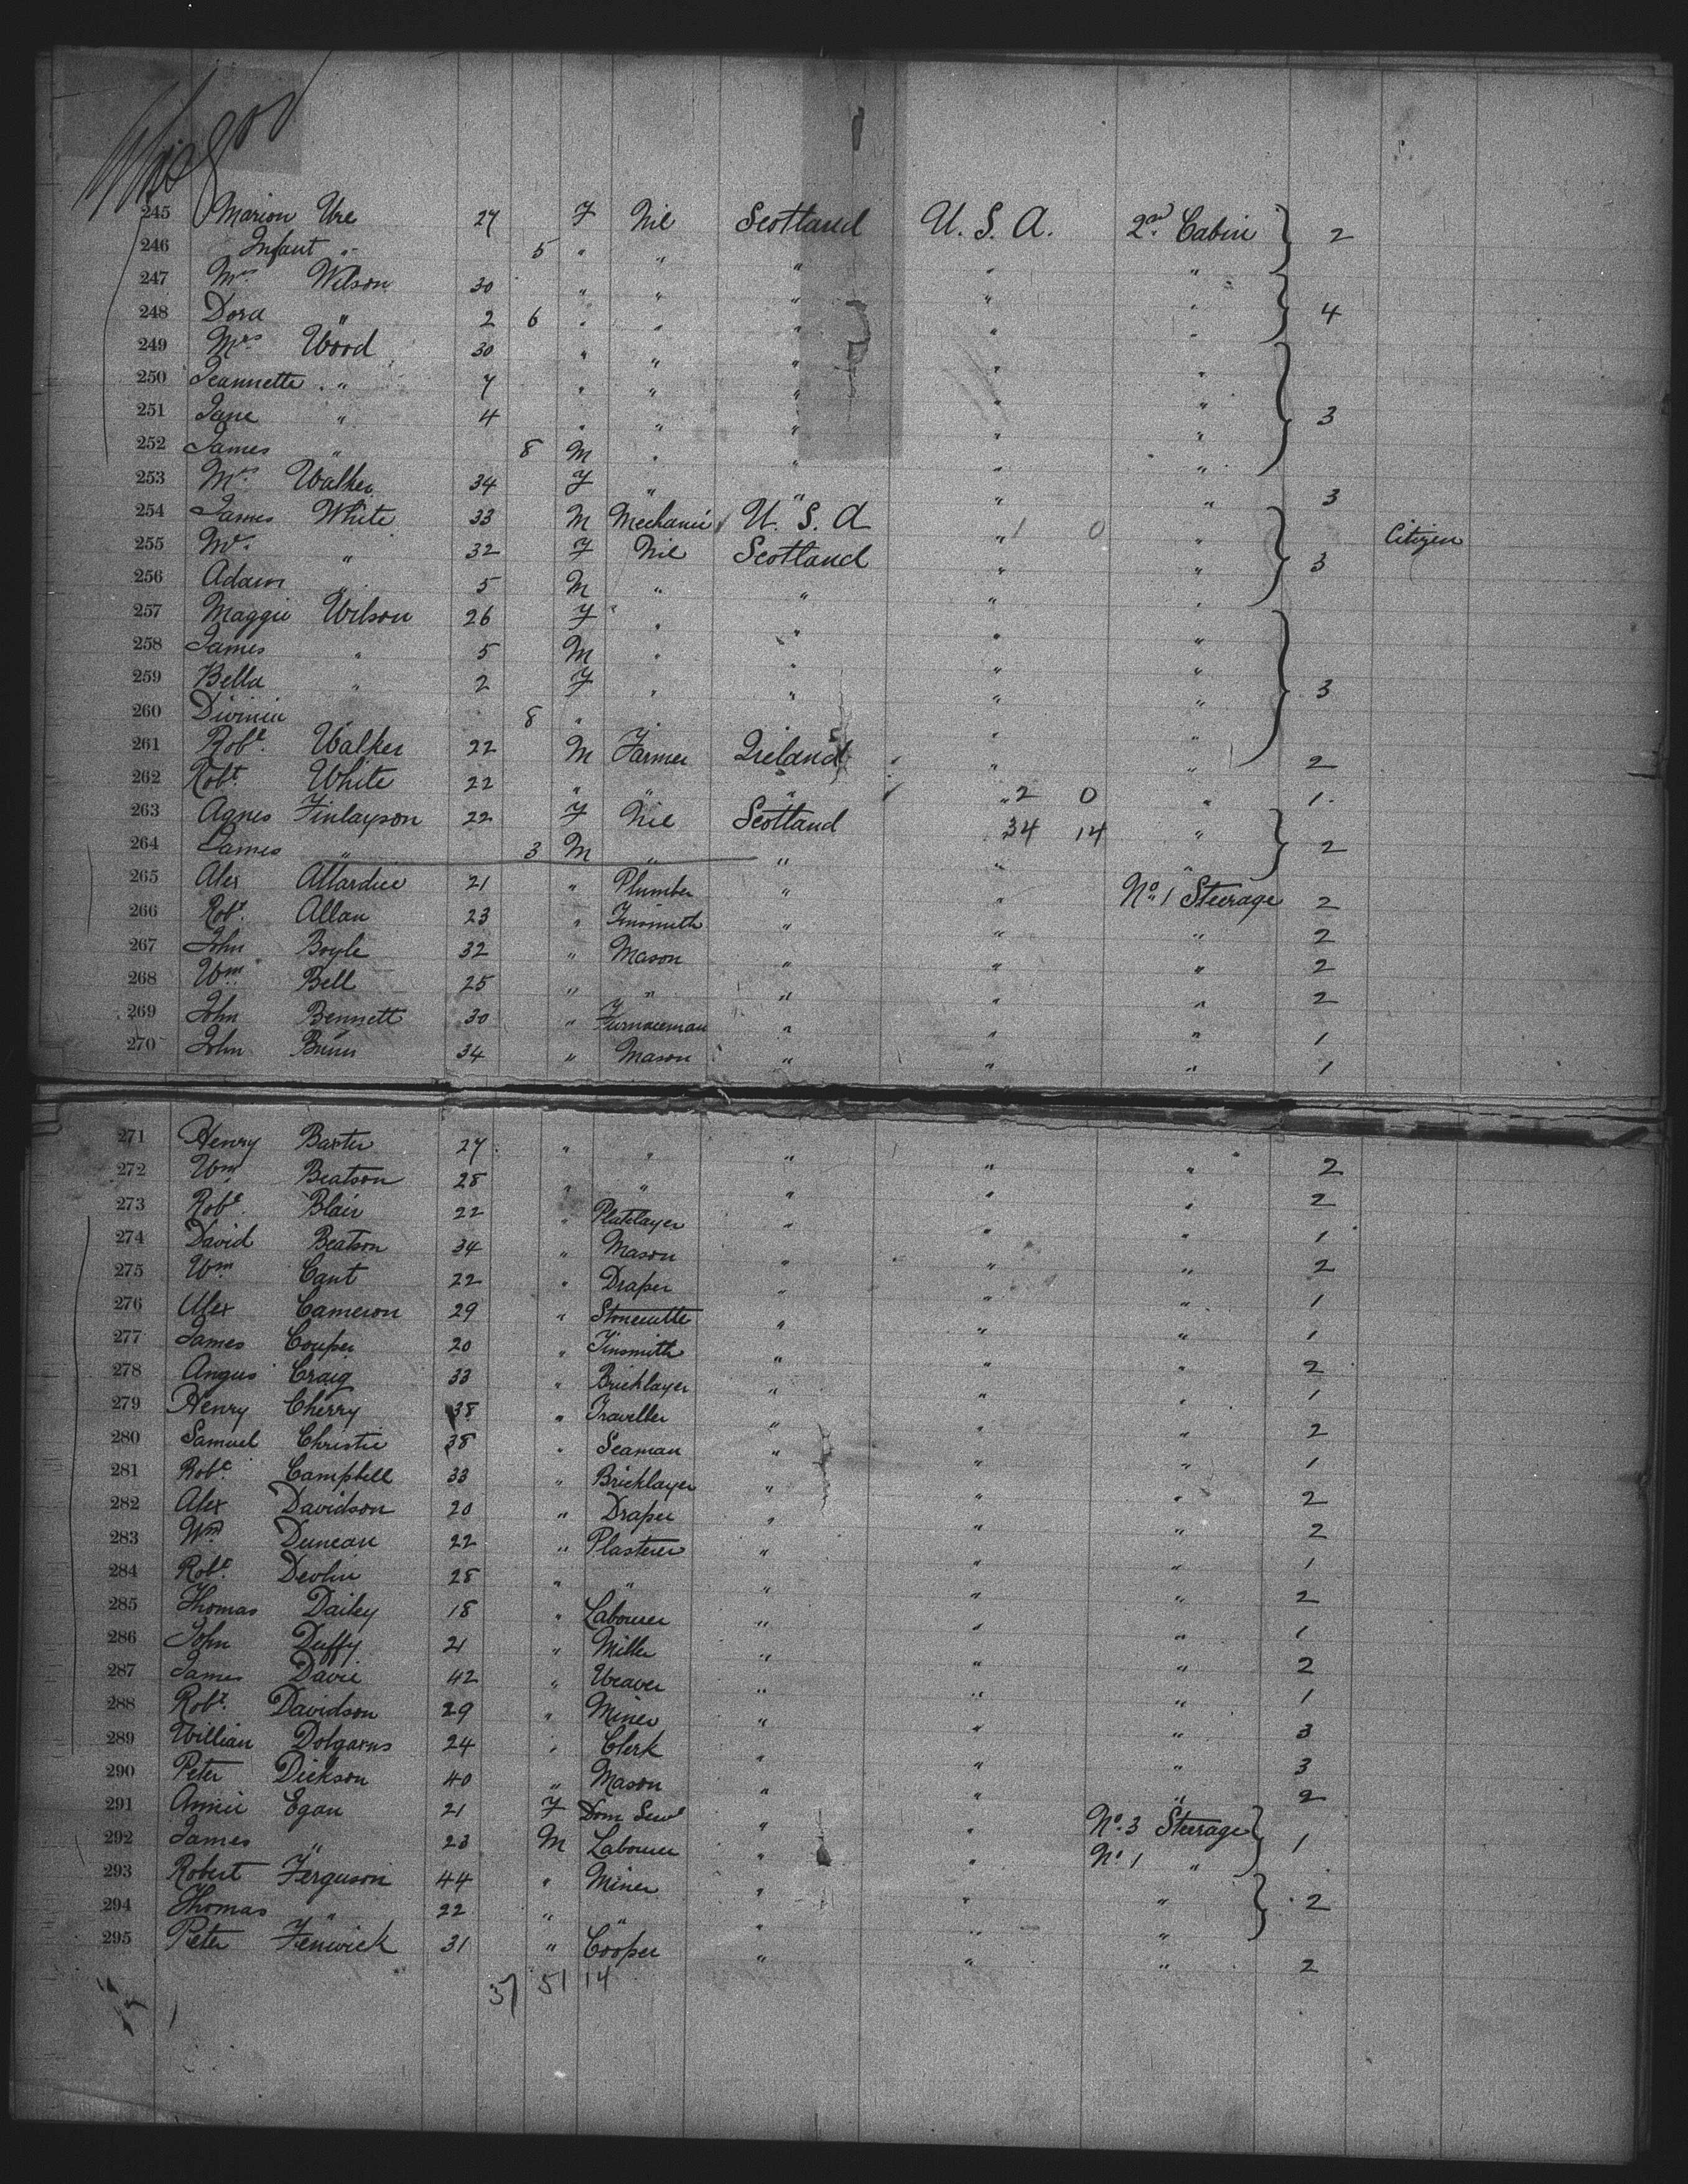 245 Marion Ure 27 F Nil Scotland U. S. A. 2nd Cabin 2
246 Infant " 5 " " " " "
247 Mrs Wilson 30 " " " " "
248 Dora " 2 6 " " " " " 4
249 Mrs Wood 30 " " " " "
250 Jeannette " 7 " " " " "
251 Jane " 4 " " " " " 3
252 James " 8 M " " " "
253 Mrs Walker 34 F " " " " 3
254 James White 33 M Mechanic U. S. A " 1 0 " Citizen
255 Mrs " 32 F Nil Scotland " " 3
256 Adam " 5 M " " " "
257 Maggie Wilson 26 F " " " "
258 James " 5 M " " " "
259 Bella " 2 F " " " " 3
260 " 8 " " " " "
261 Robt. Walker 22 M Farmer Ireland " " 2
262 Robt. White 22 " " " " 2 0 " 1
263 Agnes Finlayson 22 F Nil Scotland 34 14 "
264 James " 3 M " " " " 2
265 Alex Allardice 21 " Plumber " " No. 1 Steerage 2
266 Robt. Allan 23 " Tinsmith " " " 2
267 John Boyle 32 " Mason " " " 2
268 Wm. Bell 25 " " " " " 2
269 John Bennett 30 " Furnaceman " " " 1
270 John 34 " Mason " " " 1
271 Henry Baxter 27 " " " " " 2
272 Wm Beatson 28 " " " " " 2
273 Robt. Blair 22 " Platelayer " " " 1
274 David Beatson 34 " Mason " " " 2
275 Wm Cant 22 " Draper " " " 1
276 Alex Cameron 29 " Stonecutter " " " 1
277 James Couper 20 " Tinsmith " " " 2
278 Angus Craig 33 " Bricklayer " " " 1
279 Henry Cherry 38 " Traveller " " " 2
280 Samuel Christie 38 " Seaman " " " 1
281 Robt. Campbell 33 " Bricklayer " " " 2
282 Alex Davidson 20 " Draper " " " 2
283 Wm Duncan 22 " Plasterer " " " 1
284 Robt. Devlin 28 " " " " " 2
285 Thomas Dailey 18 " Labourer " " " 1
286 John Duffy 21 " Miller " " " 2
287 James Davie 42 " Weaver " " " 1
288 Robt. Davidson 29 " Miner " " " 3
289 William Dolgarns 24 " Clerk " " " 3
290 Peter Dickson 40 " Mason " " " 2
291 Annie Egan 21 F Dom Servt " " No. 3 Steerage
292 James " 23 M Labourer " " No. 1 " 1
293 Robert Ferguson 44 " Miner " " "
294 Thomas " 22 " " " " " 2
295 Peter Fenwick 31 " Cooper " " " 2
51 14